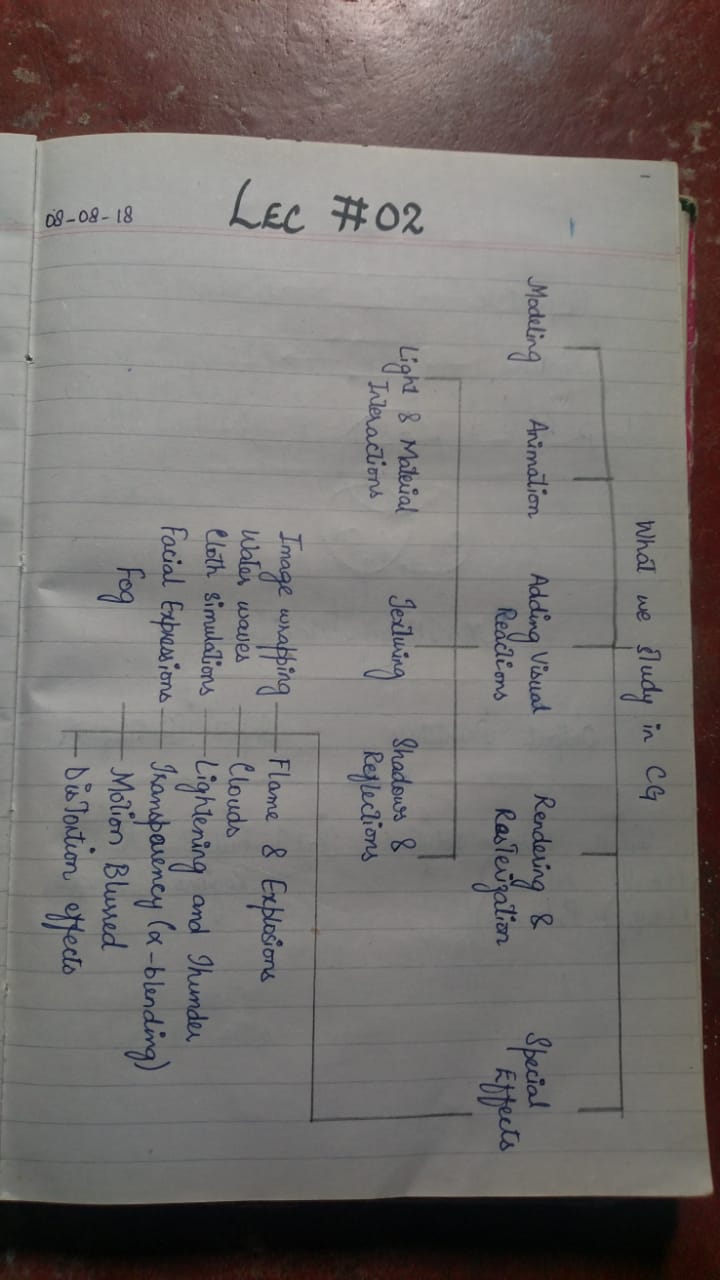 What we study in CG
Modeling
Animation
Adding Visual
Reactions
Rendering &
Rasterization
Special
Effects
Light & Material
Interactions
Texturing
Shadows &
Reflections
Image wrapping
Water waves
Cloth simulations
Facial Expressions
Fog
Flame & Explosions
Clouds
Lightening and Thunder
Transparency (α-blending)
Motion Blurred
Distortion effects
LEC #02
08-08-18